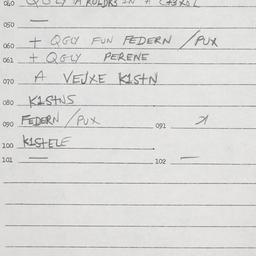 040
050 —
+ QGLY FUN FEDERN / PUX
060
061 + QGLY PERENE
070 A VEJXE K1StN
080 K1StNS
090 FEDERN / PUX 091
100 K1StELE
101 — 102 —